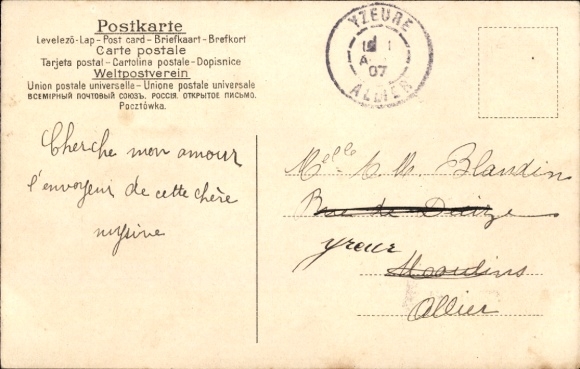 Postkarte
Levelező-Lap - Post card - Briefkaart - Brefkort
Carte postale
Tarjeta postal - Cartolina postale - Dopisnice
Weltpostverein
Union postale universelle - Unione postale universale
ВСЕМІРНЫЙ ПОЧТОВЫЙ СОЮЗЪ. РОССІЯ. ОТКРЫТОЕ ПИСЬМО.
Pocztówka.
YZEURE
07
ALLIER
Cherche mon amour
l'envoyeur de cette chère
Melle Blandin
Rue de
Moulins
Allier